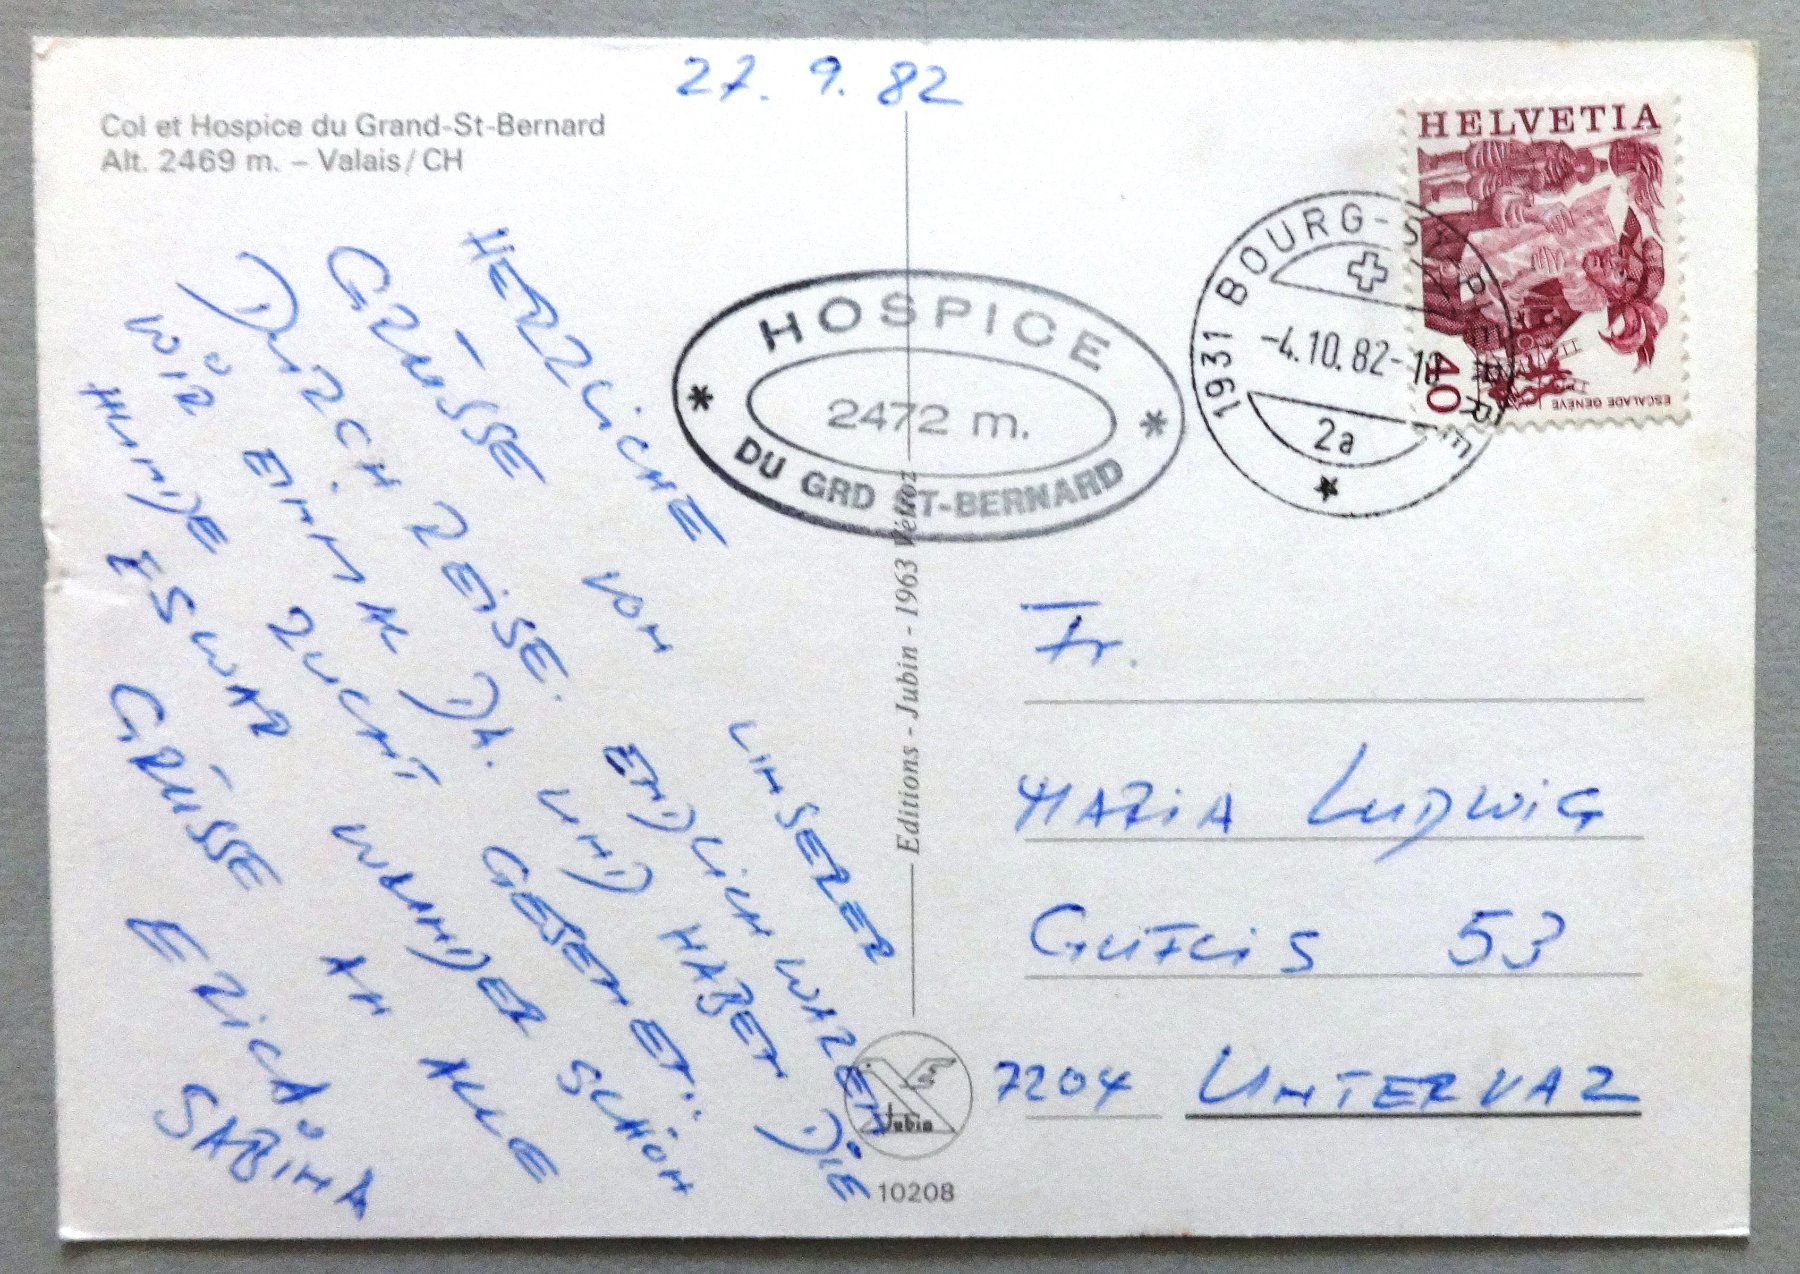 27. 9. 82
Col et Hospice du Grand-St-Bernard
Alt. 2469 m. – Valais/CH
HERZLICHE VON UNSERER
GRÜSSE
DURCH REISE. ENDLICH WAREN
WIR EINMAL DA. UND HABEN DIE
HUNDE ZUCHT GESEHEN..
ES WAR WUNDER SCHÖN
GRÜSSE AN ALLE
ERICA
SABINA
HOSPICE
* 2472 m. *
DU GRD ST-BERNARD
Editions - Jubin - 1963 Vétroz
Jubin
10208
HELVETIA
40
ESCALADE GENÈVE
1931 BOURG-ST-PIERRE
-4.10.82-18
2a
Fr.
MARIA LUDWIG
GUFLIS 53
7204 UNTERVAZ